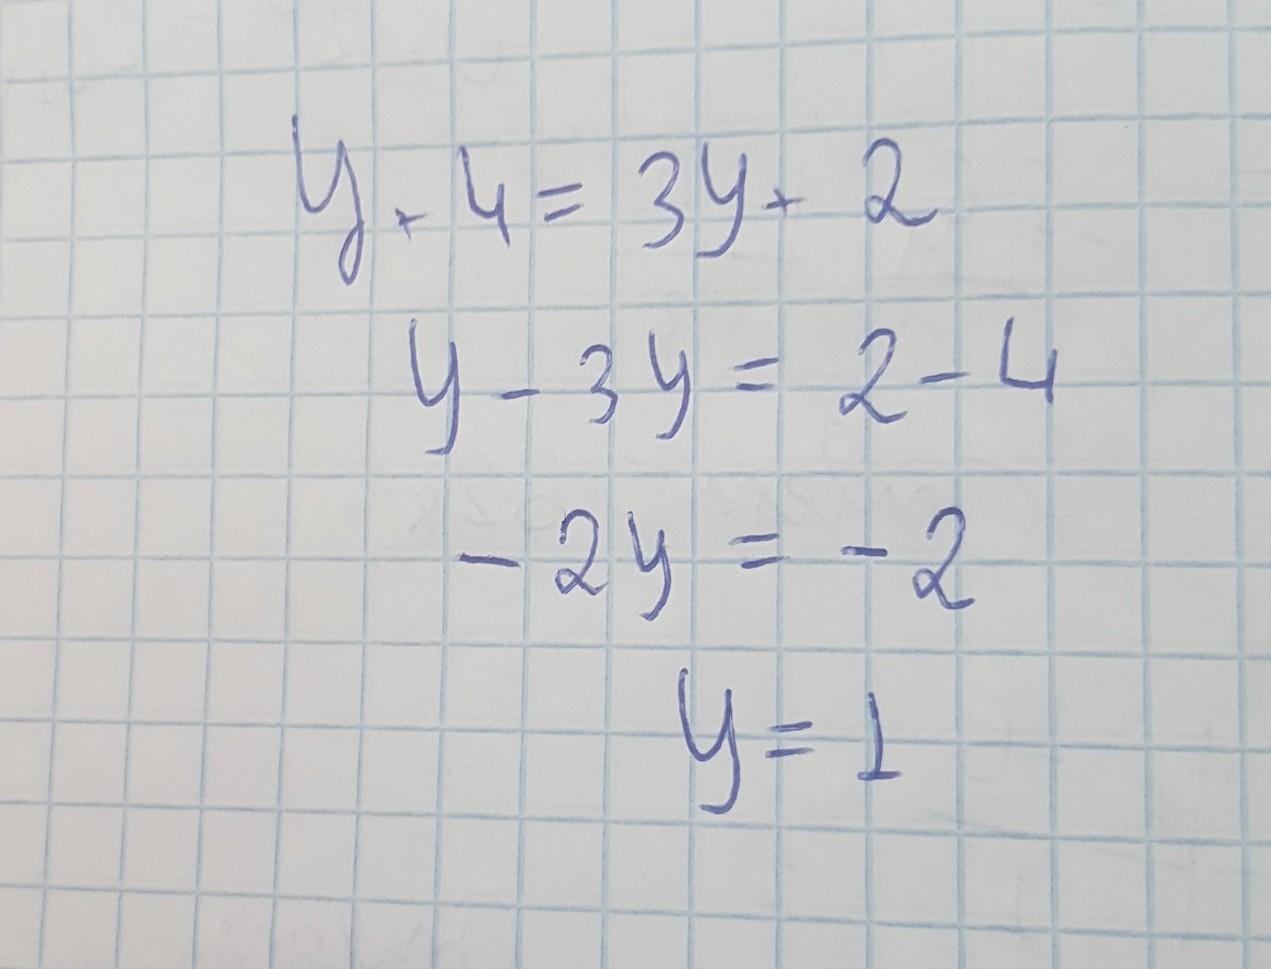 y + 4 = 3y + 2
y - 3y = 2 - 4
- 2y = - 2
y = 1